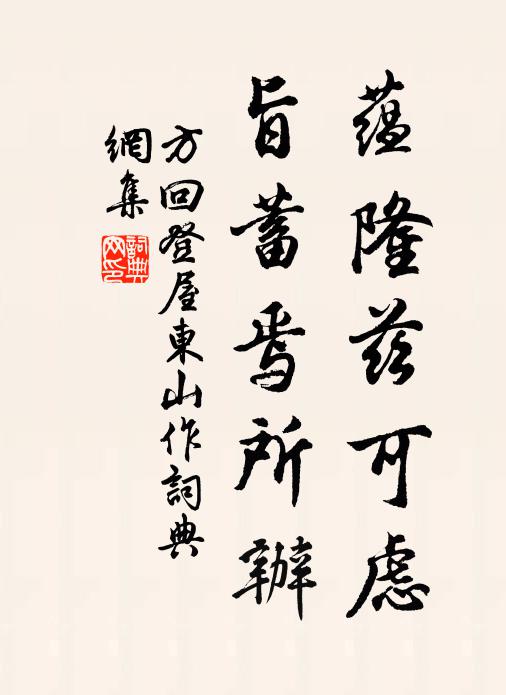 蕴隆茲可慮
旨蓄焉所辦
方回登屋東山作詞典
網集
詞典
网印